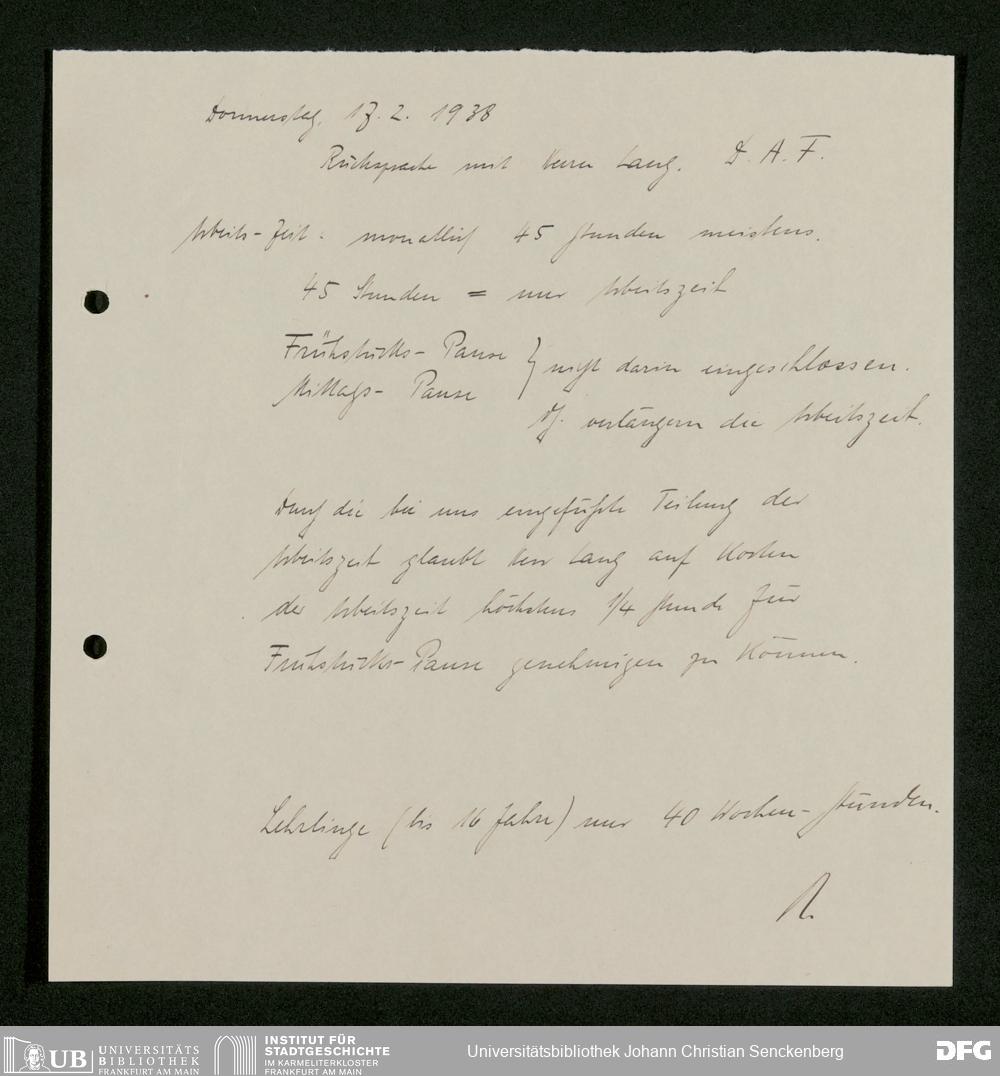 Donnerstag, 17. 2. 1938
Rücksprache mit Herrn Lang. D. A. F.
Arbeits-Zeit: monatlich 45 Stunden meistens.
45 Stunden = nur Arbeitszeit
Frühstücks- Pause } nicht darin eingeschlossen.
Mittags- Pause
verlängern die Arbeitszeit.
Durch die bei uns eingeführte Teilung der
Arbeitszeit glaubt Herr Lang auf Kosten
der Arbeitszeit höchstens 1/4 Stunde für
Frühstücks-Pause genehmigen zu können.
Lehrlinge (bis 16 Jahre) nur 40 Wochen-Stunden.
R.
UB UNIVERSITÄTS
BIBLIOTHEK
FRANKFURT AM MAIN
INSTITUT FÜR
STADTGESCHICHTE
IM KARMELITERKLOSTER
FRANKFURT AM MAIN
Universitätsbibliothek Johann Christian Senckenberg
DFG